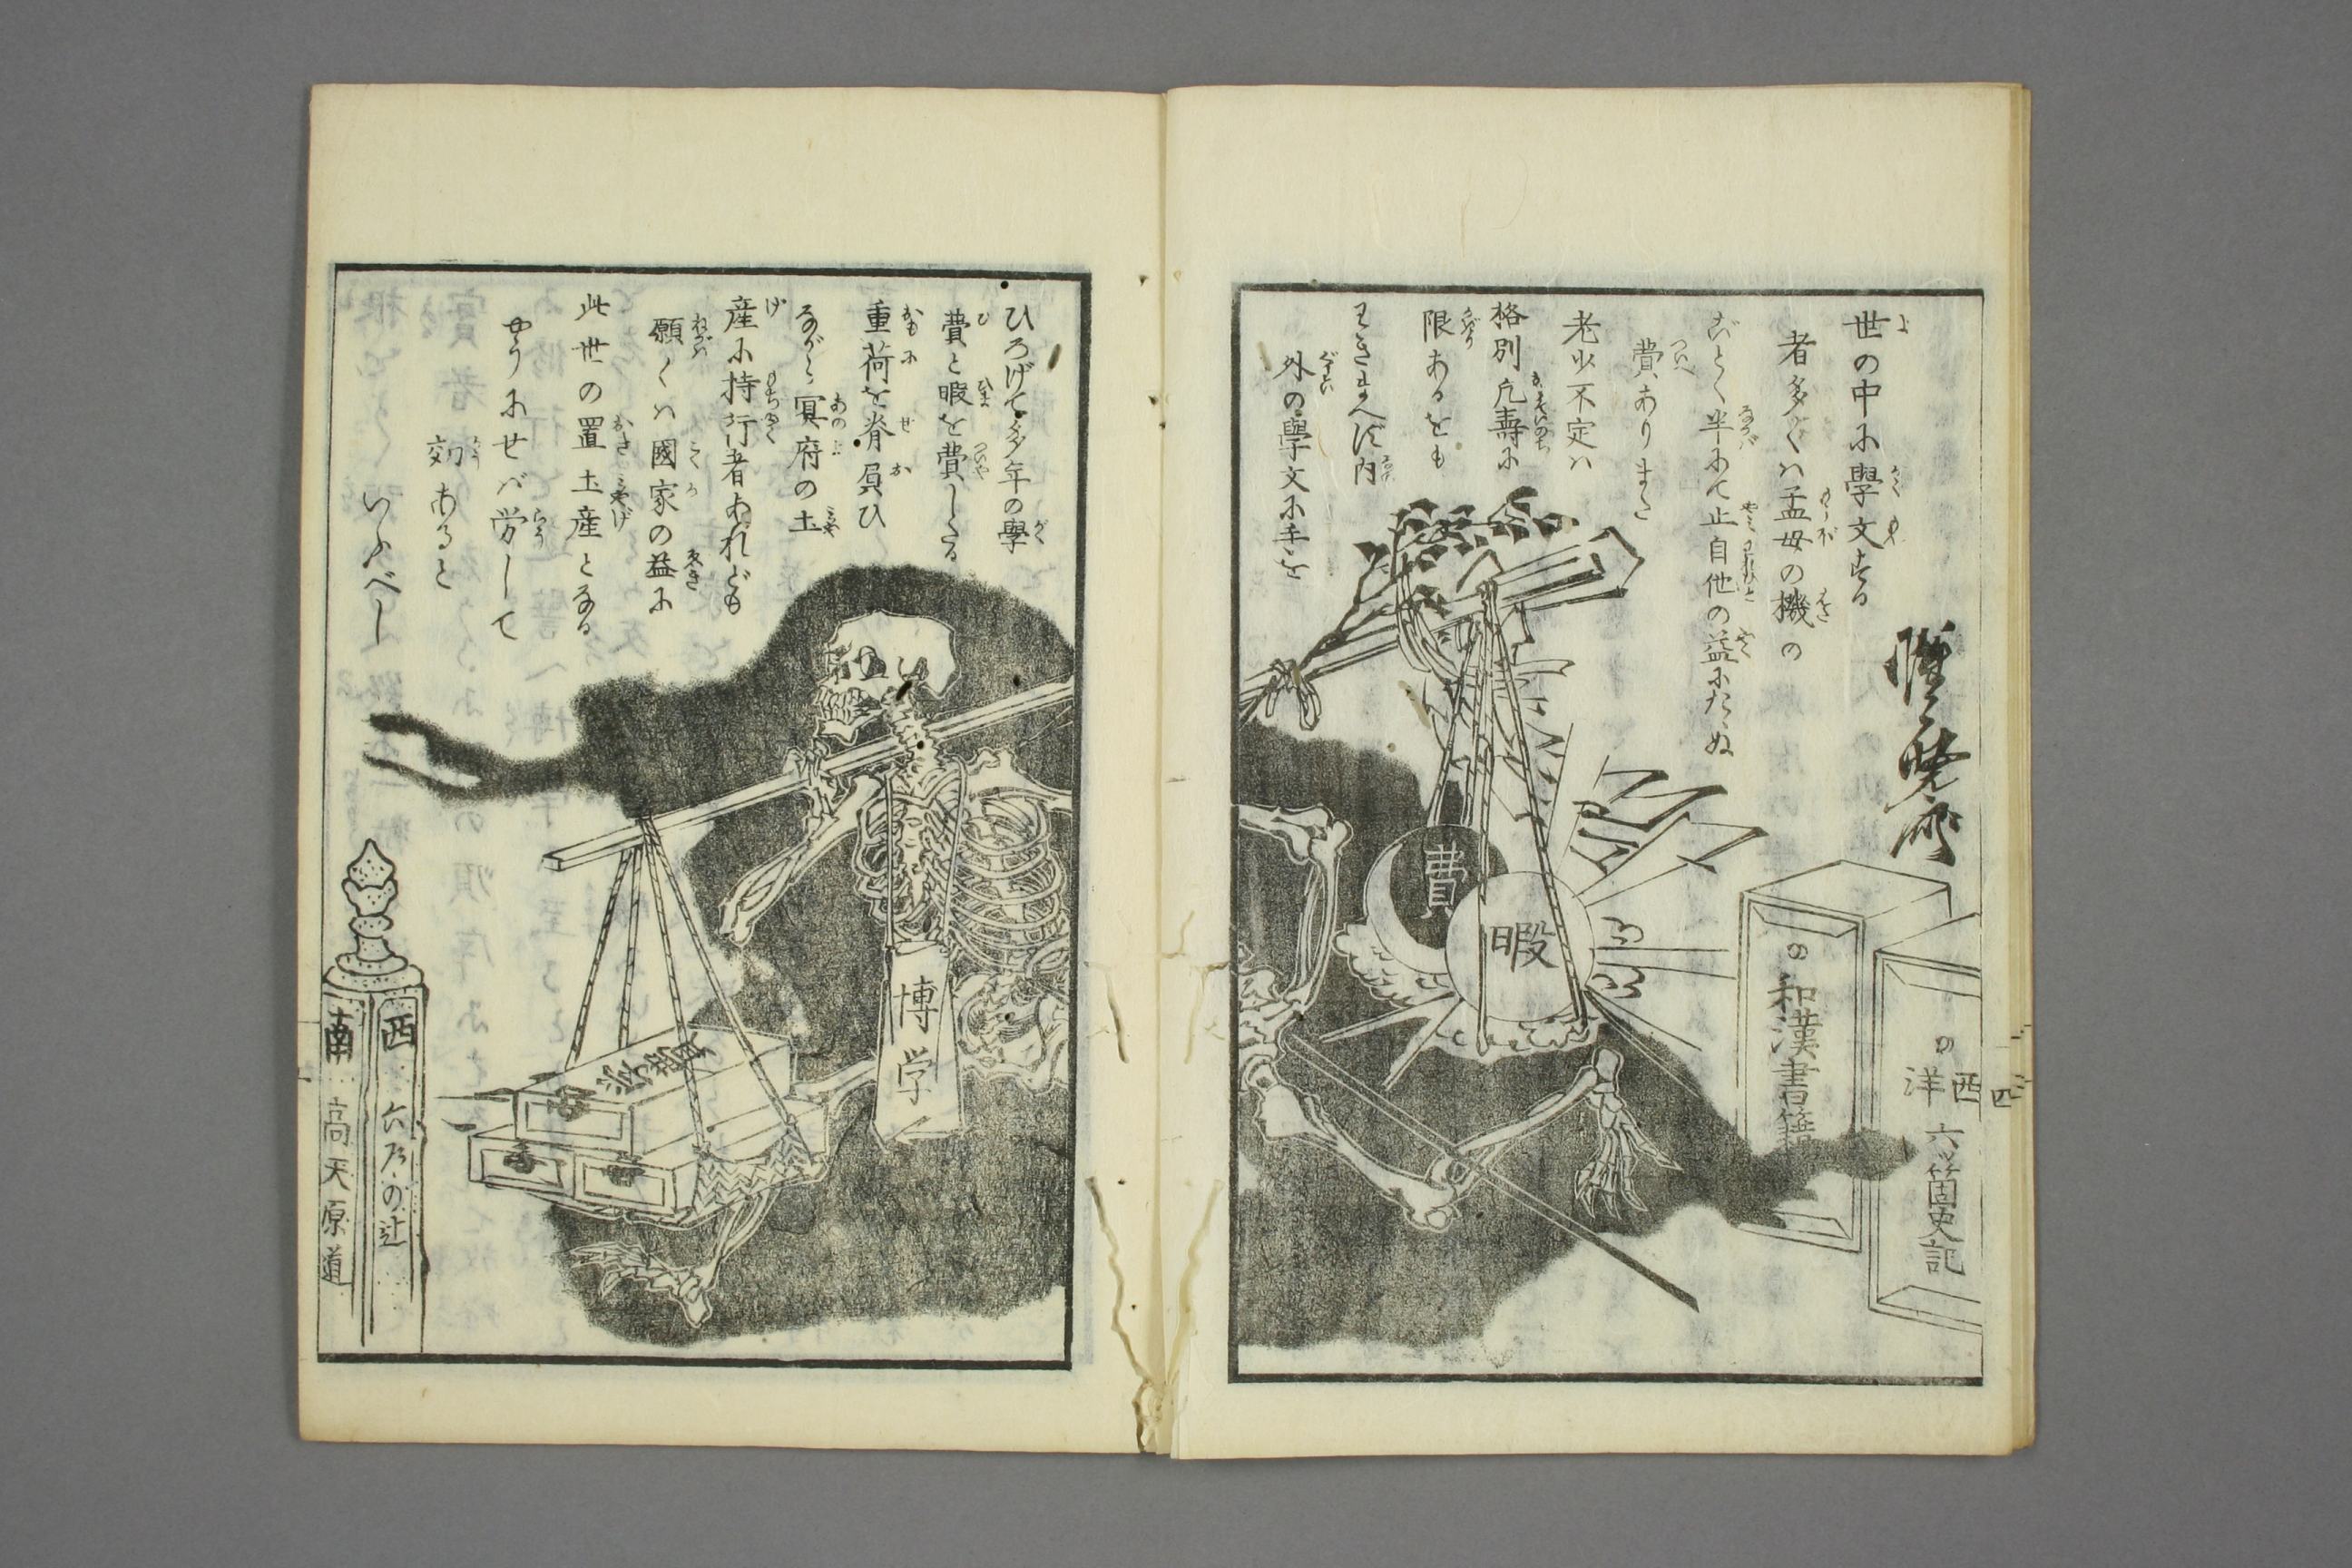 世の中に學文する
者多くハ孟母の機の
ごとく半にて止自他の益にたゝぬ
費ありまた
老少不定ハ
格別凡壽に
限あるをも
わきまへず内
外の學文に手を
惺々暁斎
費
暇
の和漢書籍
の西洋六ツ箇史記
ひろげて多年の學
費と暇を費したる
重荷を脊負ひ
ながら冥府の土
産に持行者あれども
願くハ國家の益に
此世の置土産となる
やうにせバ労して
効あると
いふべし
博学
西 六方の辻
南 高天原道